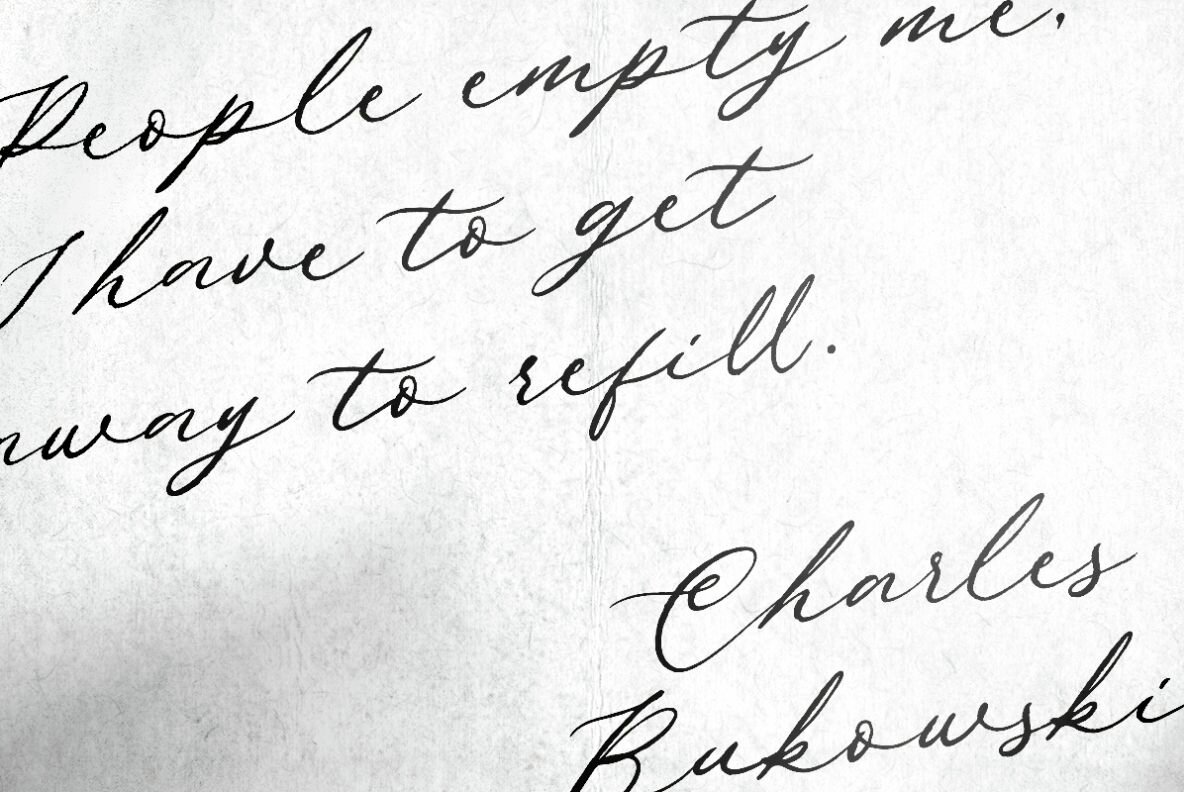 People empty me.
I have to get
away to refill.
Charles
Bukowski